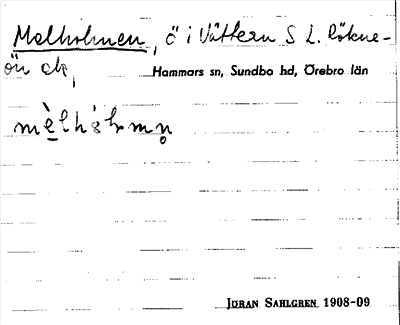 Malholmen, ö i Vättern S L. Rökne-
ön ek,
Hammars sn, Sundbo hd, Örebro län
JÖRAN SAHLGREN 1908-09